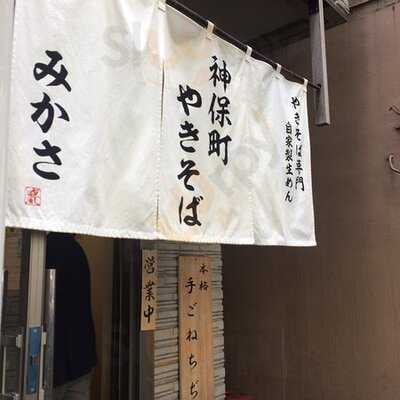 やきそば専門
自家製生めん
神保町
やきそば
みかさ
営業中
本格
手ごねちぢ